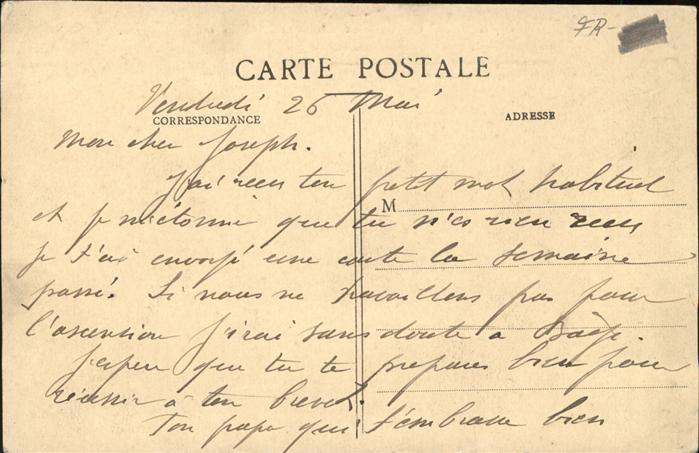 FR-
CARTE POSTALE
Vendredi 26 Mai
CORRESPONDANCE
ADRESSE
Mon cher Joseph.
J'ai reçu ton petit mot habituel
M
et je m'étonne que tu n'es rien reçu
je t'ai envoyé une carte la semaine
passé. Si nous ne travaillons pas pour
l'ascension j'irai sans doute a
J'espere que tu te prepares bien pour
réussir à ton brevet.
Ton papa qui t'embrasse bien